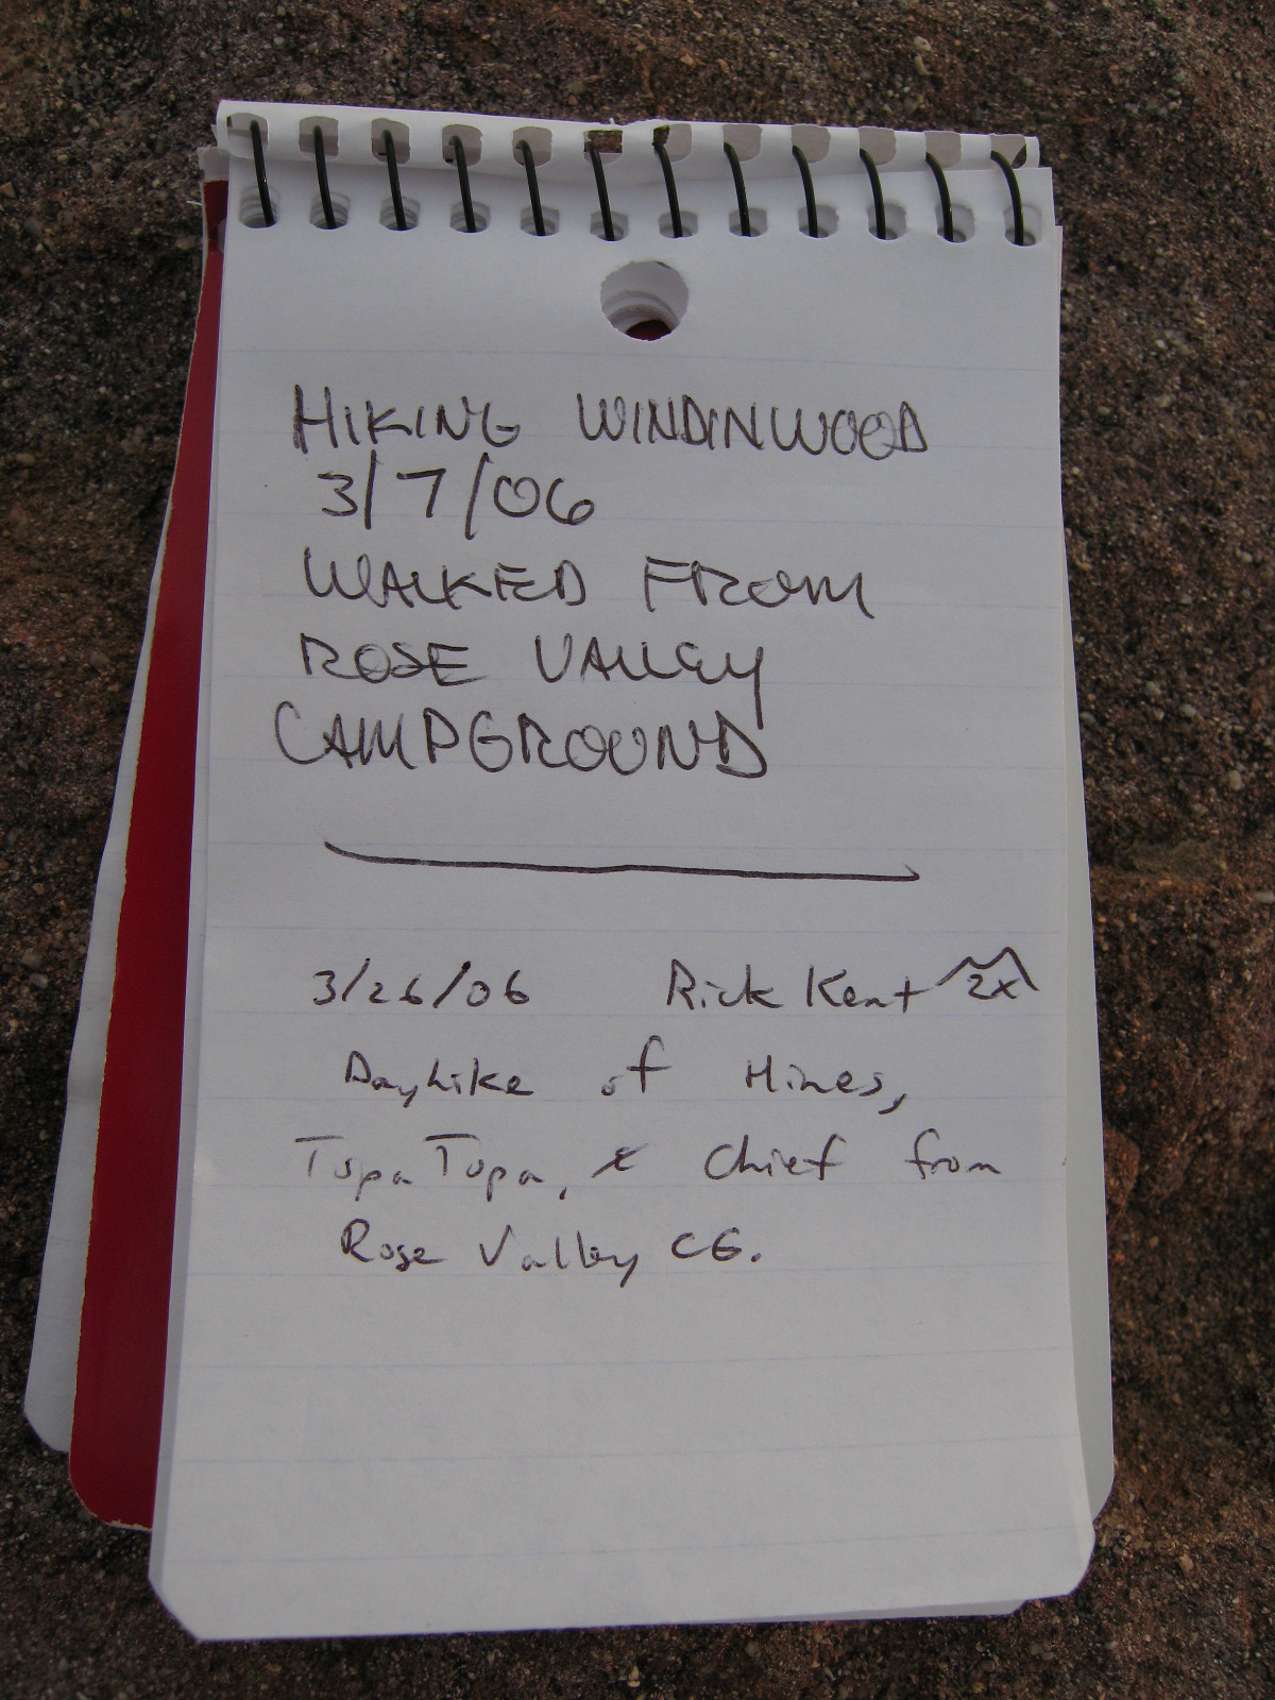 HIKING WINDINWOOD
3/7/06
WALKED FROM
ROSE VALLEY
CAMPGROUND
3/26/06 Rick Kent 2x
Dayhike of Hines,
Topa Topa, & Chief from
Rose Valley CG.